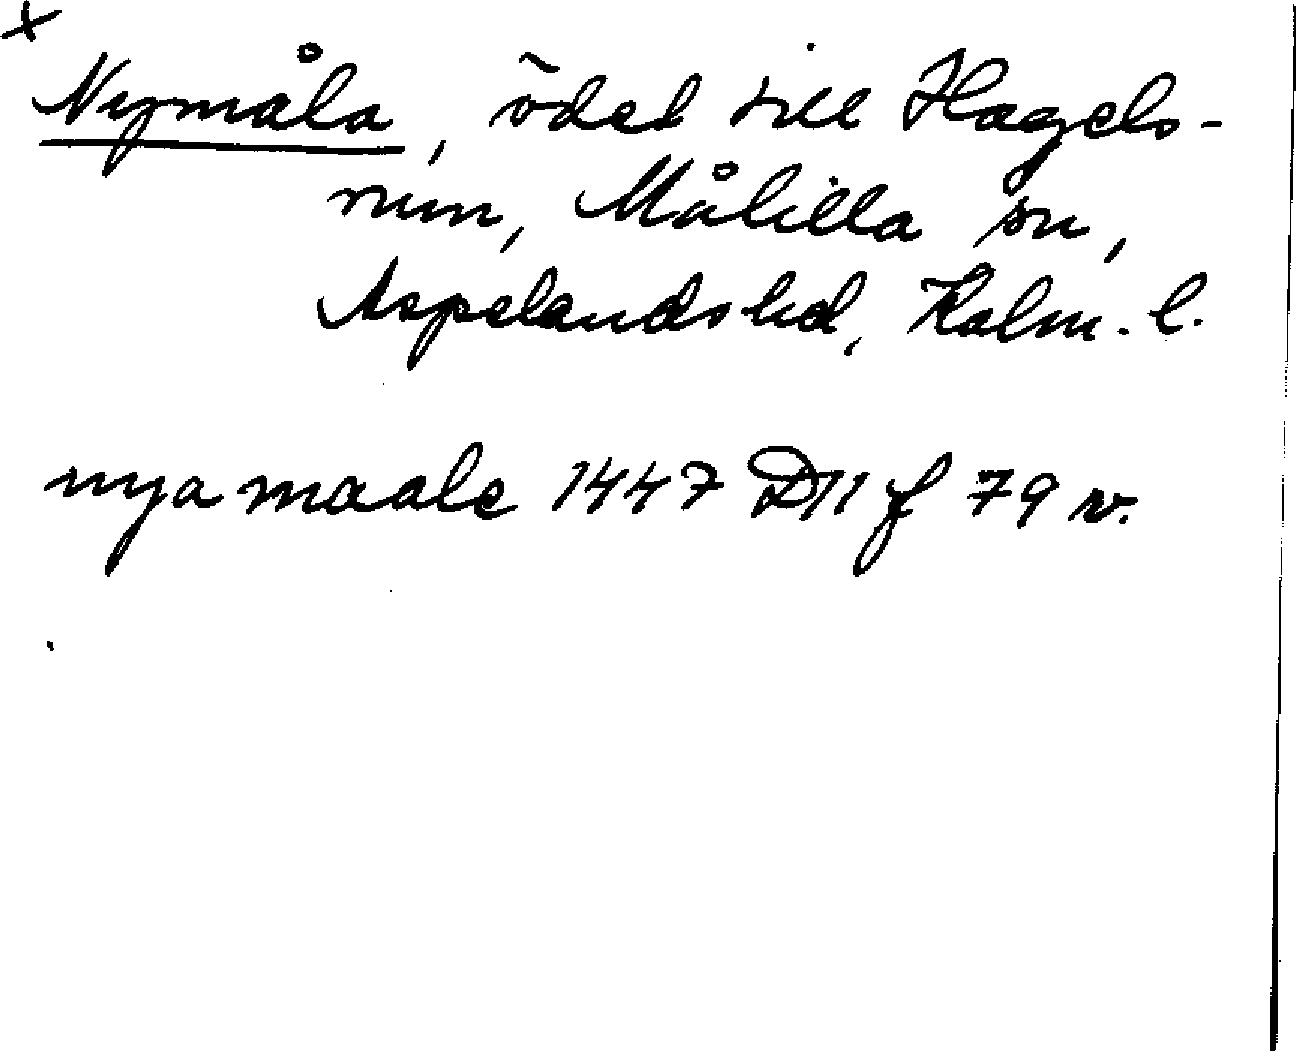 x
Nymåla, ödel till Hagels-
rum, Målilla sn,
Aspelands hd, Kalm. l.
nya maale 1447 D11 f 79 v.